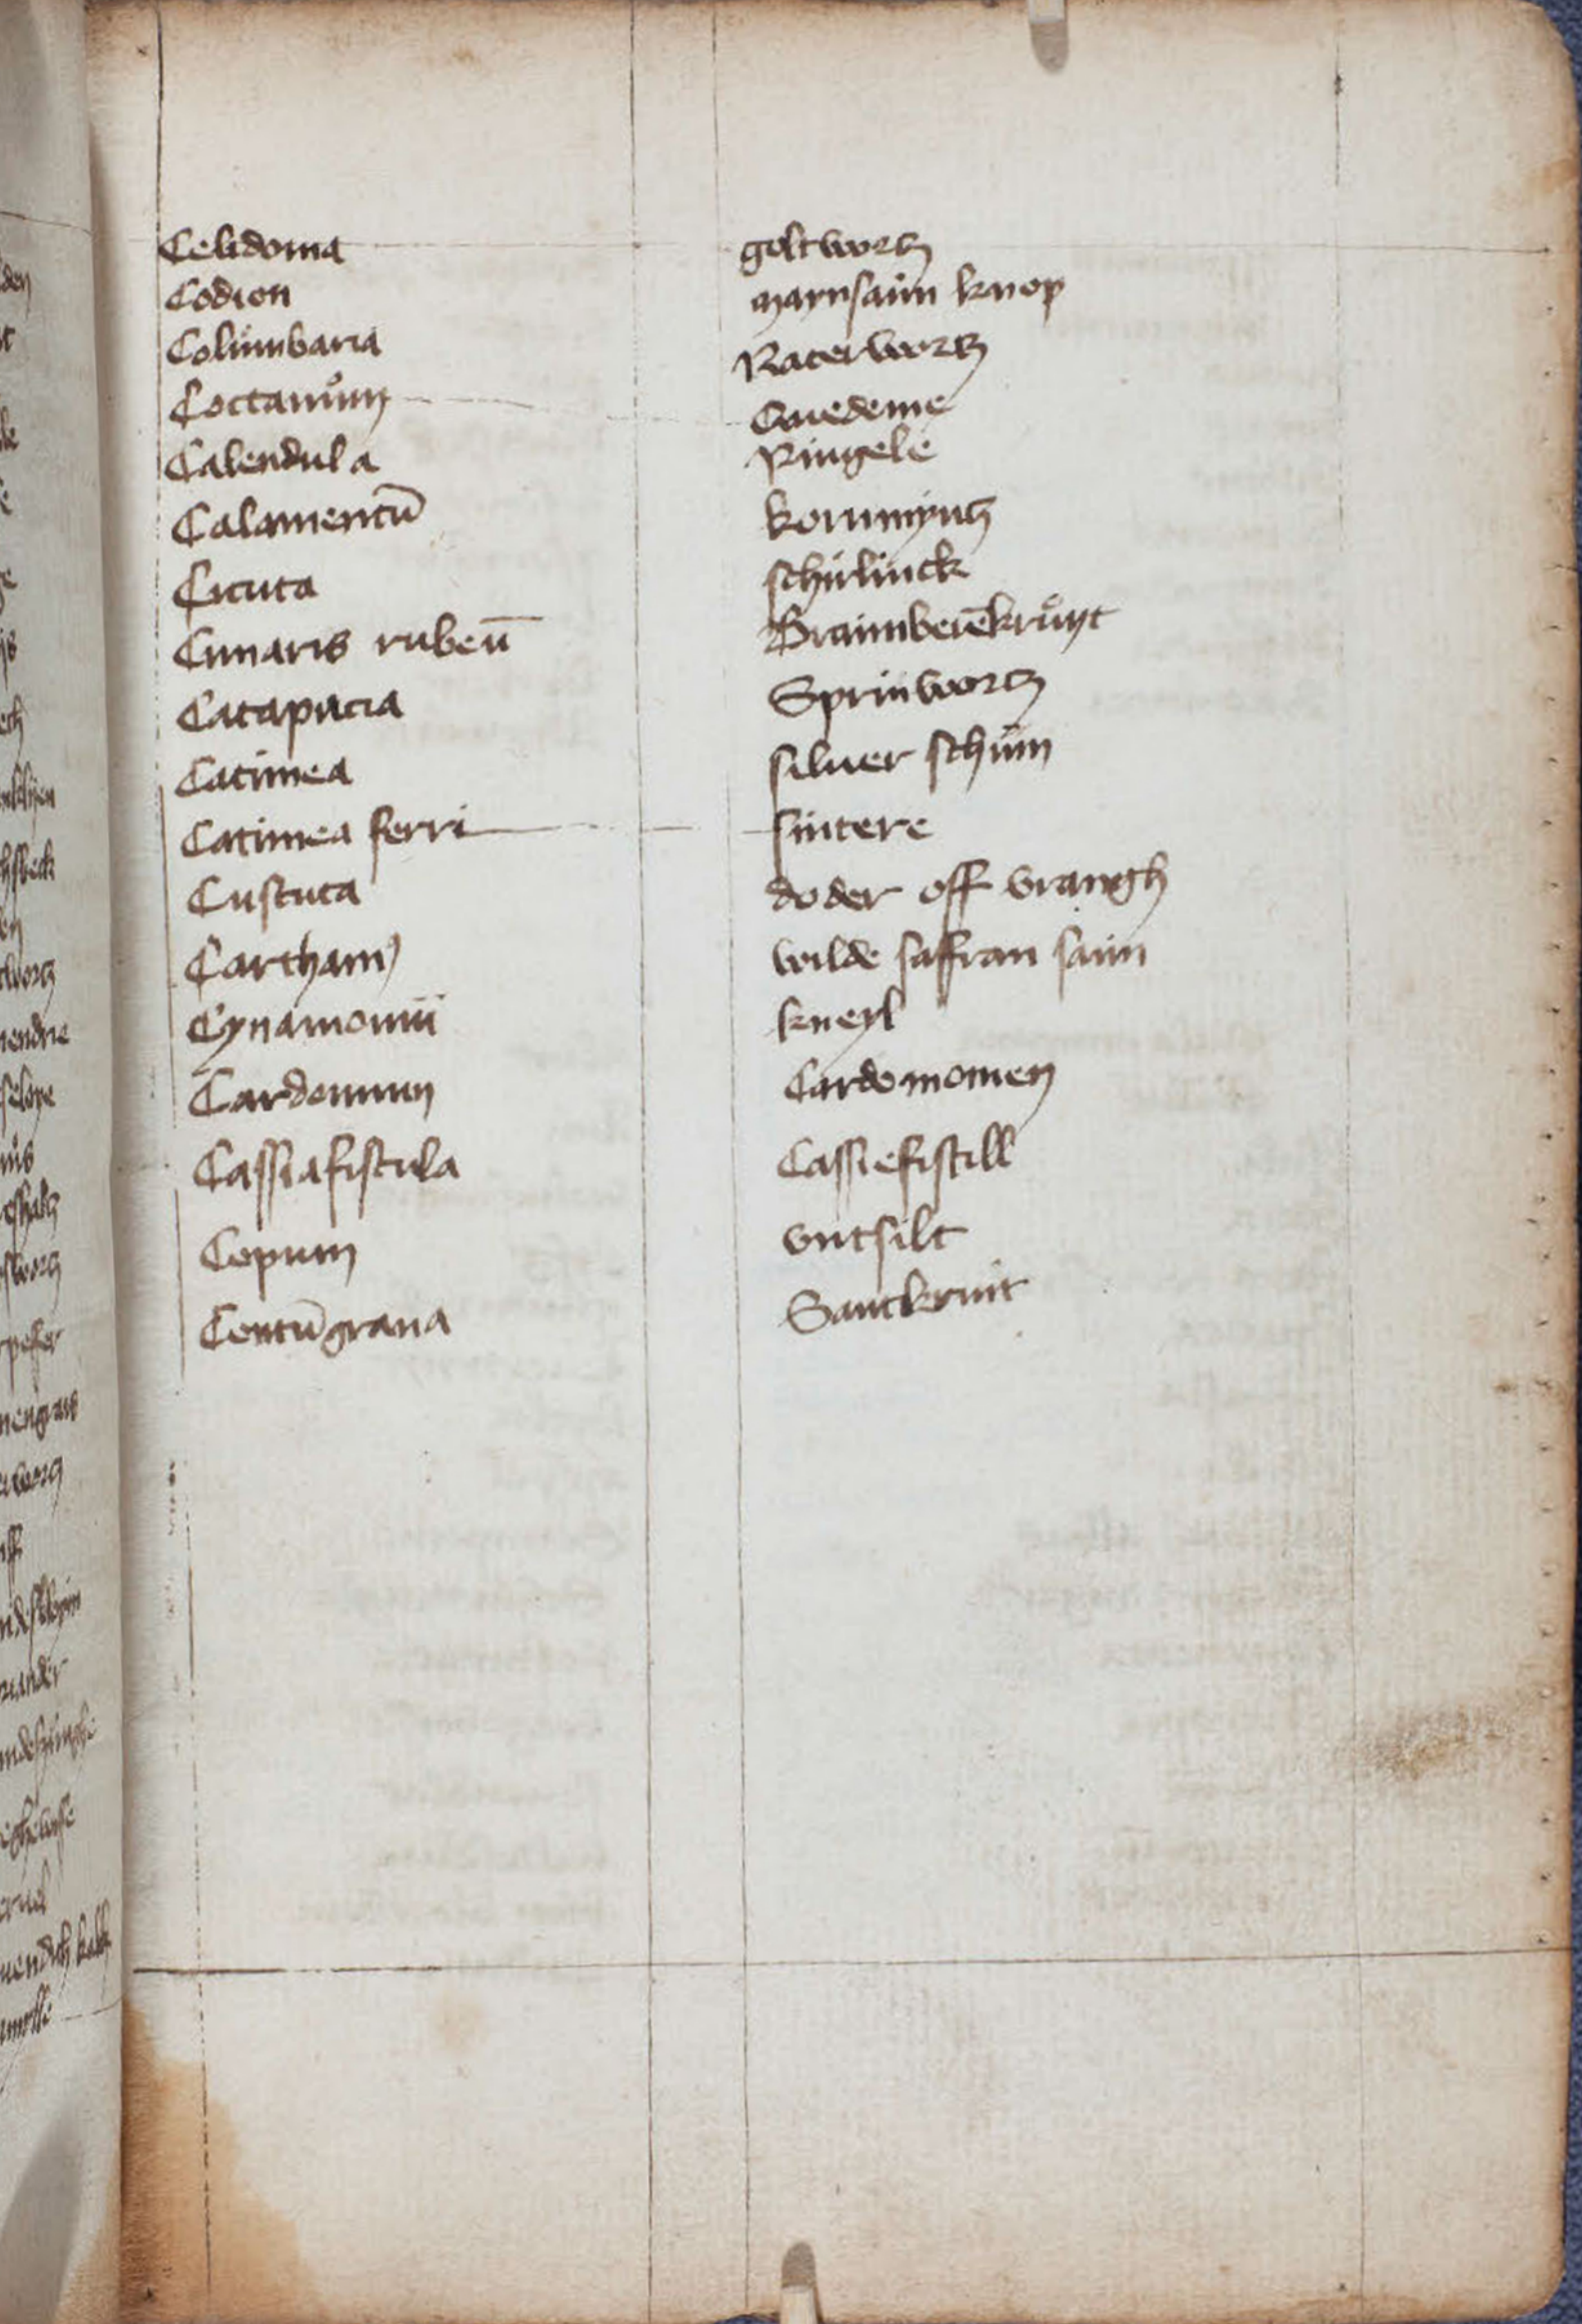 Celidonia goltwortz
Codion maynsaim knop
Columbaria Naterwortz
Coctanům Quedeme
Calendula Ringele
Calamentū kornmyntz
Cicuta schirlinck
Cunaris rubeū Braimberēkrůyt
Catapucia Sprinwortz
Catimea siluer schům
Catimea ferri sintere
Custuta doder off vrangh
Carthami wilde saffran saim
Cynamomū kneyl
Cardomum Cardomomen
Cassiafistula Cassiefistill
Cepum vntsilt
Centūgrana Sanckruit